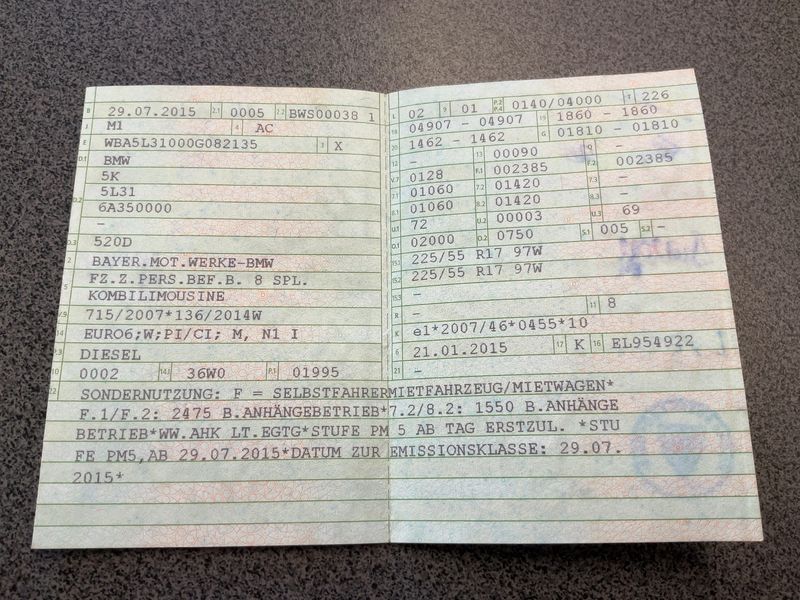 B 29.07.2015 2.1 0005 2.2 BWS00038 1
J M1 4 AC
E WBA5L31000G082135 3 X
D.1 BMW
5K
5L31
D.2 6A350000
-
D.3 520D
2 BAYER.MOT.WERKE-BMW
5 FZ.Z.PERS.BEF.B. 8 SPL.
KOMBILIMOUSINE
V.9 715/2007*136/2014W
14 EURO6;W;PI/CI; M, N1 I
P.3 DIESEL
10 0002 14.1 36W0 P.1 01995
L 02 9 01 P.2 P.4 0140/04000 T 226
18 04907 - 04907 19 1860 - 1860
20 1462 - 1462 G 01810 - 01810
12 - 13 00090 Q -
V.7 0128 F.1 002385 F.2 002385
7.1 01060 7.2 01420 7.3 -
8.1 01060 8.2 01420 8.3 -
U.1 72 U.2 00003 U.3 69
O.1 02000 O.2 0750 S.1 005 S.2 -
15.1 225/55 R17 97W
15.2 225/55 R17 97W
15.3 -
R - 11 8
K e1*2007/46*0455*10
6 21.01.2015 17 K 16 EL954922
21 -
22 SONDERNUTZUNG: F = SELBSTFAHRERMIETFAHRZEUG/MIETWAGEN*
F.1/F.2: 2475 B.ANHÄNGEBETRIEB*7.2/8.2: 1550 B.ANHÄNGE
BETRIEB*WW.AHK LT.EGTG*STUFE PM 5 AB TAG ERSTZUL. *STU
FE PM5,AB 29.07.2015*DATUM ZUR EMISSIONSKLASSE: 29.07.
2015*